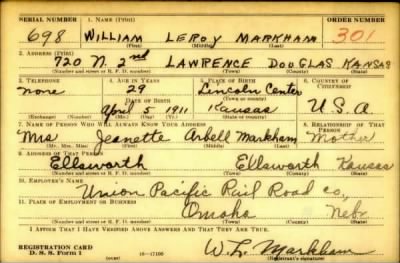 SERIAL NUMBER 1. NAME (Print) ORDER NUMBER
698 WILLIAM LEROY MARKHAM 301
(First) (Middle) (Last)
2. ADDRESS (Print)
720 N. 2nd LAWRENCE DOUGLAS KANSAS
(Number and street or R. F. D. number) (Town) (County) (State)
3. TELEPHONE 4. AGE IN YEARS 5. PLACE OF BIRTH 6. COUNTRY OF CITIZENSHIP
none 29 Lincoln Center
DATE OF BIRTH (Town or county)
April 5 1911 Kansas U.S.A
(Exchange) (Number) (Mo.) (Day) (Yr.) (State or country)
7. NAME OF PERSON WHO WILL ALWAYS KNOW YOUR ADDRESS 8. RELATIONSHIP OF THAT PERSON
Mrs Jeanette Arbell Markham Mother
(Mr., Mrs., Miss) (First) (Middle) (Last)
9. ADDRESS OF THAT PERSON
Ellsworth Ellsworth Kansas
(Number and street or R. F. D. number) (Town) (County) (State)
10. EMPLOYER'S NAME
Union Pacific Rail Road co,
11. PLACE OF EMPLOYMENT OR BUSINESS
Omaha Nebr
(Number and street or R. F. D. number) (Town) (County) (State)
I AFFIRM THAT I HAVE VERIFIED ABOVE ANSWERS AND THAT THEY ARE TRUE.
REGISTRATION CARD
D. S. S. Form 1 16—17105 W.L. Markham
(Registrant's signature)